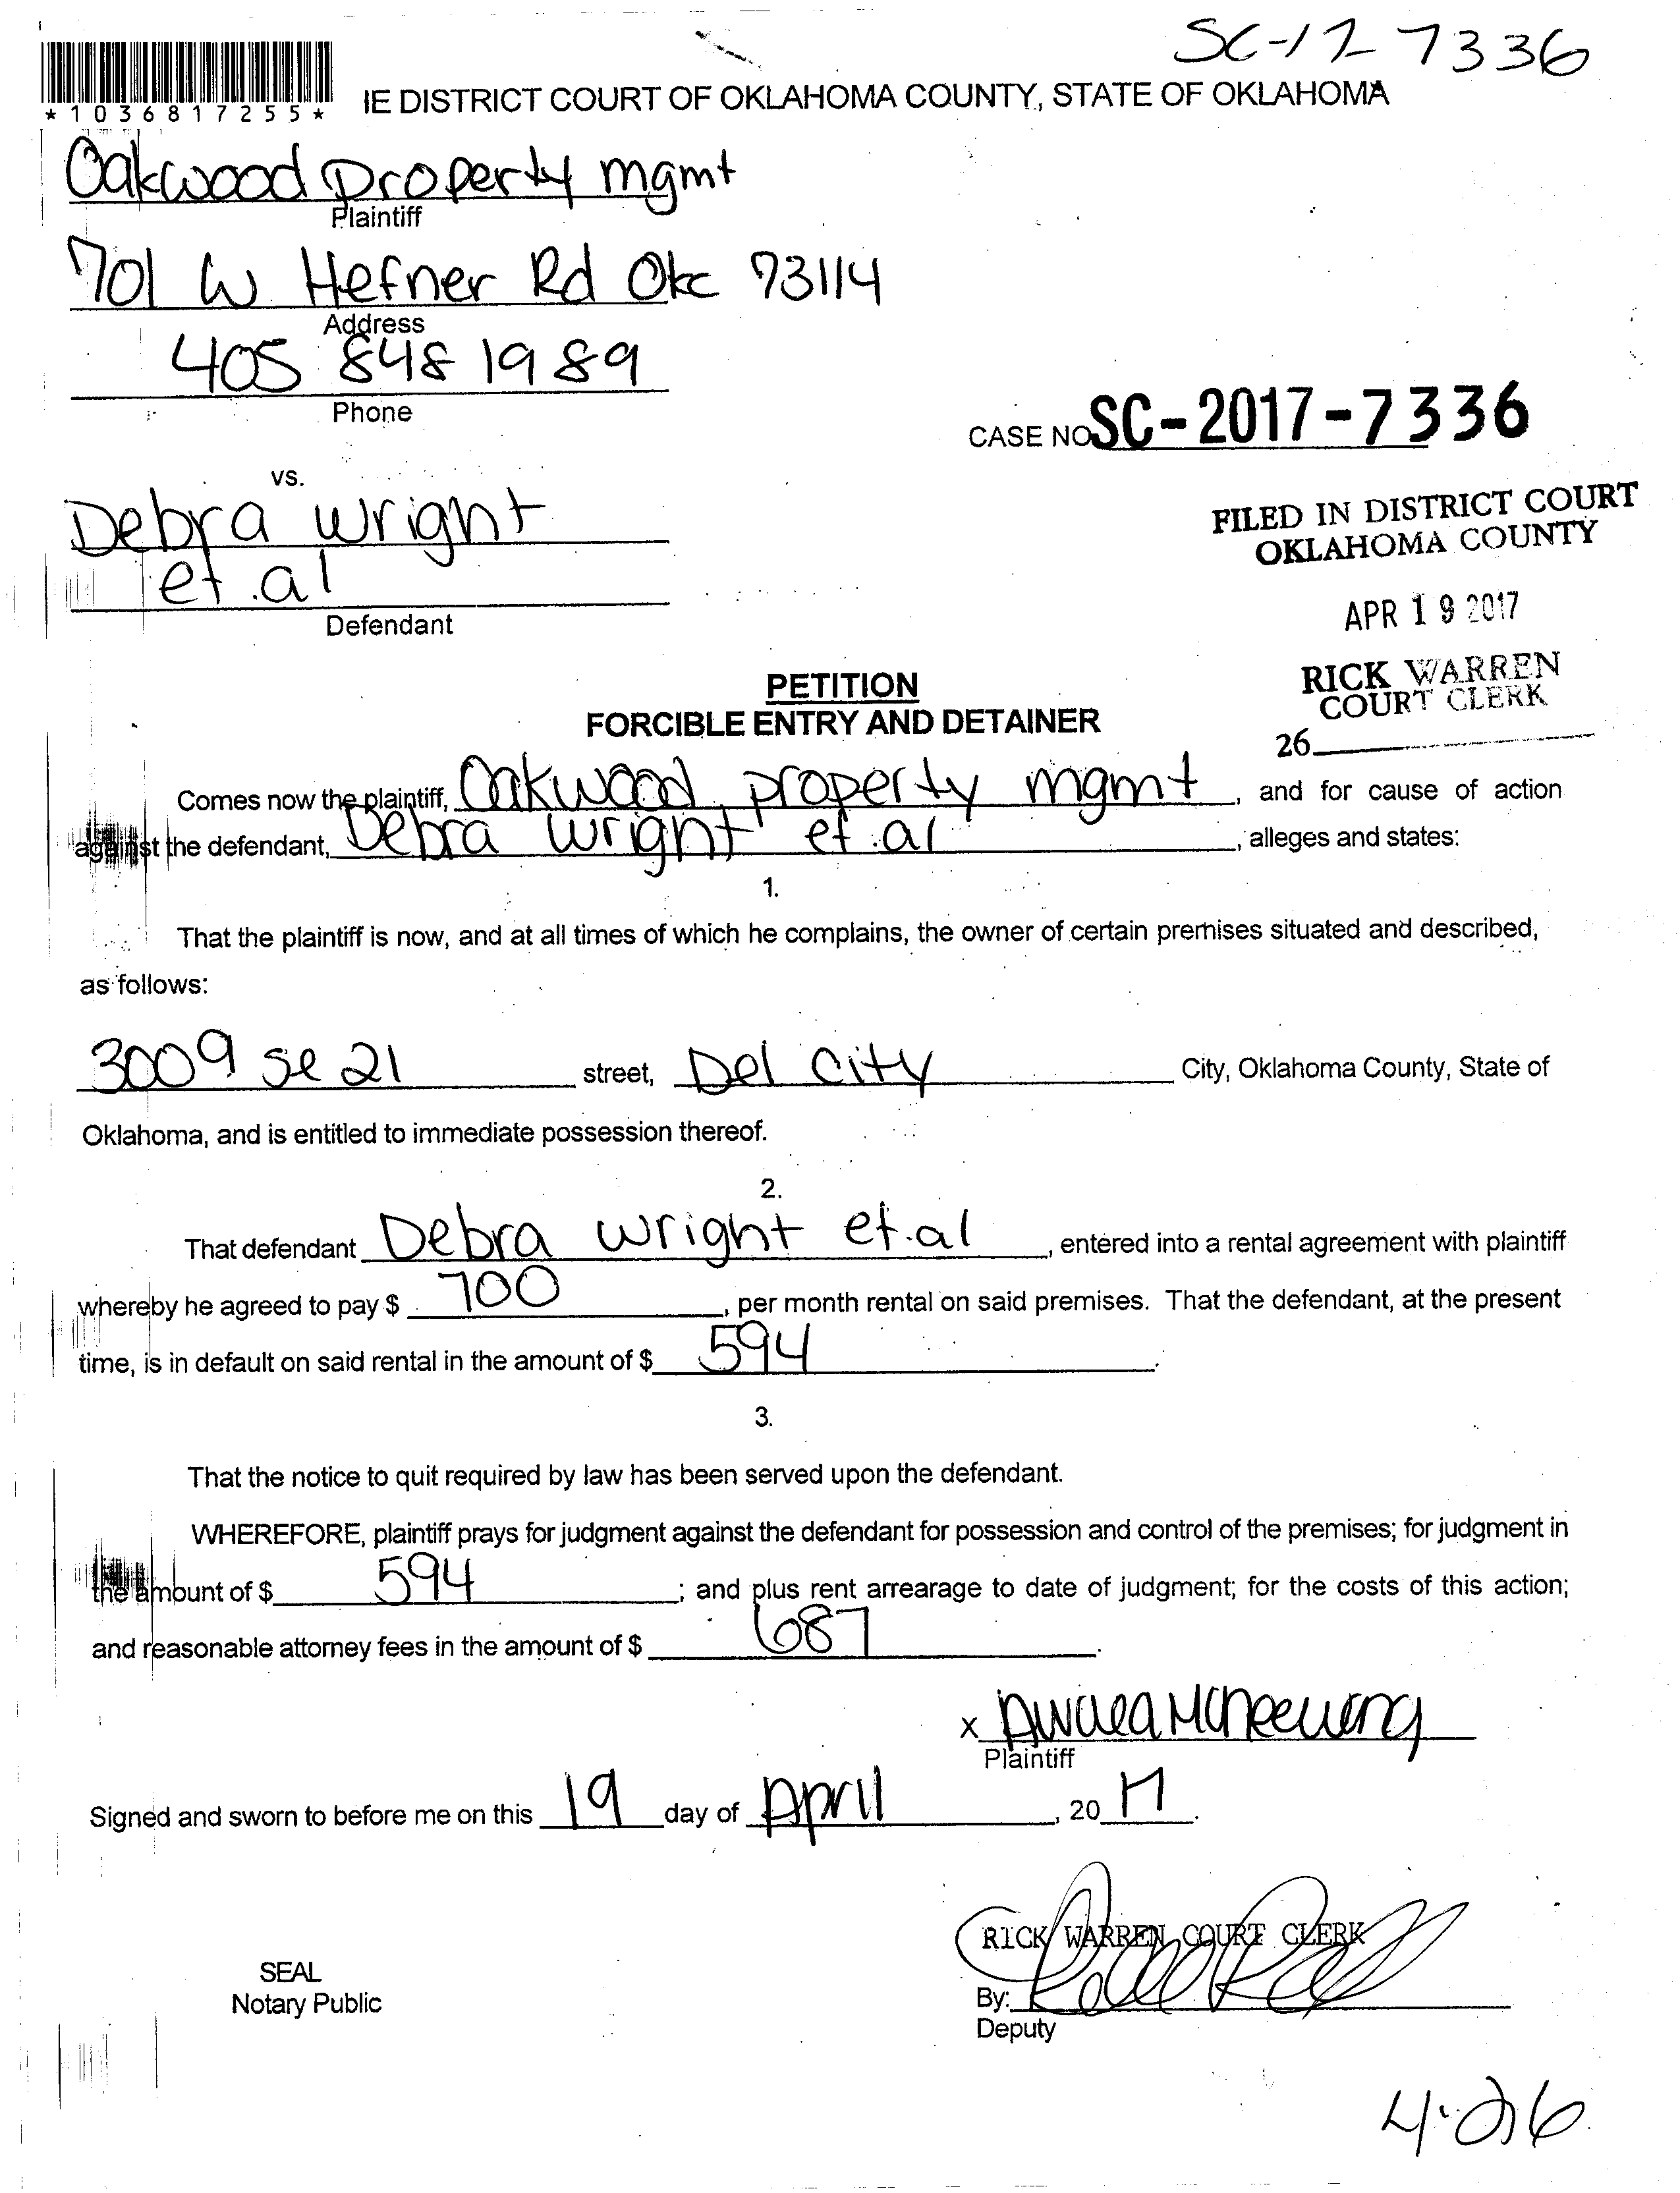 SC-17 7336
*1036817255*
IE DISTRICT COURT OF OKLAHOMA COUNTY, STATE OF OKLAHOMA
Oakwood property mgmt
Plaintiff
701 W Hefner Rd Okc 73114
Address
405 848 1989
Phone
CASE NO SC-2017-7336
vs.
Debra wright
et.al
Defendant
FILED IN DISTRICT COURT
OKLAHOMA COUNTY
APR 19 2017
RICK WARREN
COURT CLERK
26
PETITION
FORCIBLE ENTRY AND DETAINER
Comes now the plaintiff, Oakwood property mgmt, and for cause of action
against the defendant, Debra wright et.al, alleges and states:
1.
That the plaintiff is now, and at all times of which he complains, the owner of certain premises situated and described,
as follows:
3009 se 21 street, Del City City, Oklahoma County, State of
Oklahoma, and is entitled to immediate possession thereof.
2.
That defendant Debra wright et.al, entered into a rental agreement with plaintiff
whereby he agreed to pay $ 700, per month rental on said premises. That the defendant, at the present
time, is in default on said rental in the amount of $ 594.
3.
That the notice to quit required by law has been served upon the defendant.
WHEREFORE, plaintiff prays for judgment against the defendant for possession and control of the premises; for judgment in
the amount of $ 594; and plus rent arrearage to date of judgment; for the costs of this action;
and reasonable attorney fees in the amount of $ 687.
x
Plaintiff
Signed and sworn to before me on this 19 day of April, 20 17.
RICK WARREN COURT CLERK
SEAL
Notary Public
By:
Deputy
4.26